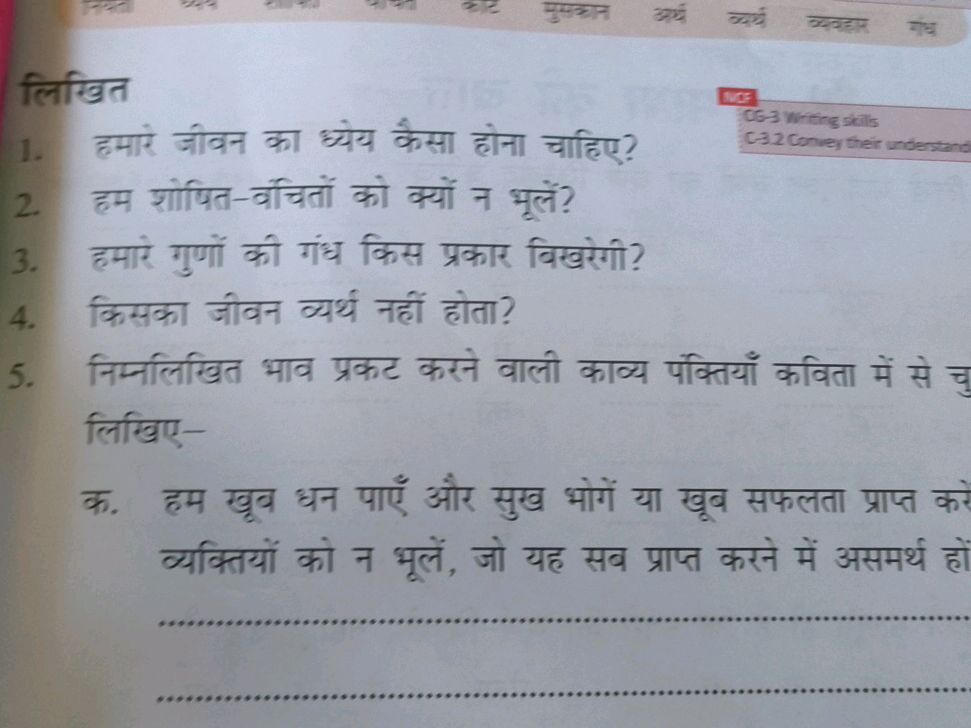 मुसकान अर्थ व्यर्थ व्यवहार गंध
लिखित
NCF
CG-3 Writing skills
C-3.2 Convey their understand
1. हमारे जीवन का ध्येय कैसा होना चाहिए?
2. हम शोषित-वंचितों को क्यों न भूलें?
3. हमारे गुणों की गंध किस प्रकार बिखरेगी?
4. किसका जीवन व्यर्थ नहीं होता?
5. निम्नलिखित भाव प्रकट करने वाली काव्य पंक्तियाँ कविता में से चु
लिखिए–
क. हम खूब धन पाएँ और सुख भोगें या खूब सफलता प्राप्त करें
व्यक्तियों को न भूलें, जो यह सब प्राप्त करने में असमर्थ हों